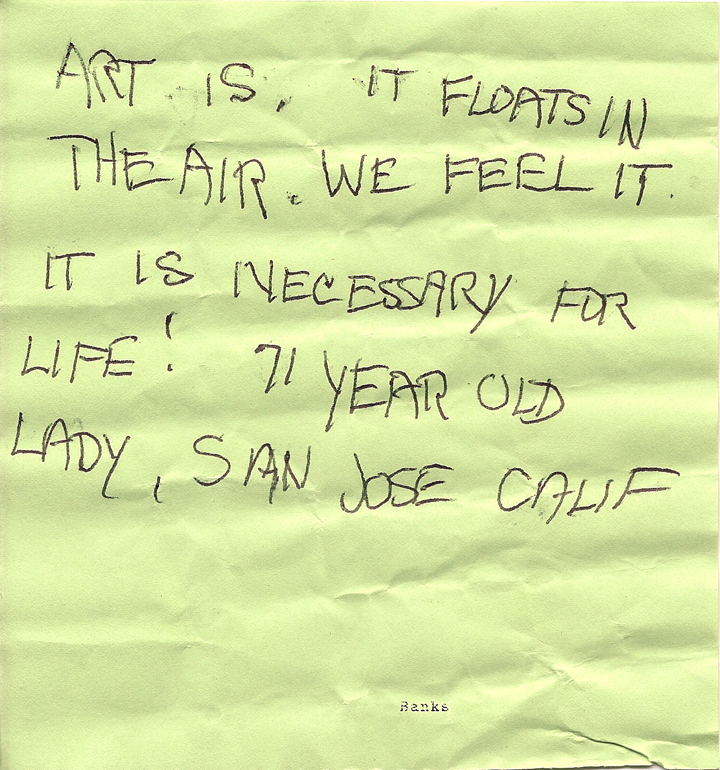 ART IS. IT FLOATS IN
THE AIR. WE FEEL IT.
IT IS NECESSARY FOR
LIFE! 71 YEAR OLD
LADY, SAN JOSE CALIF
Banks